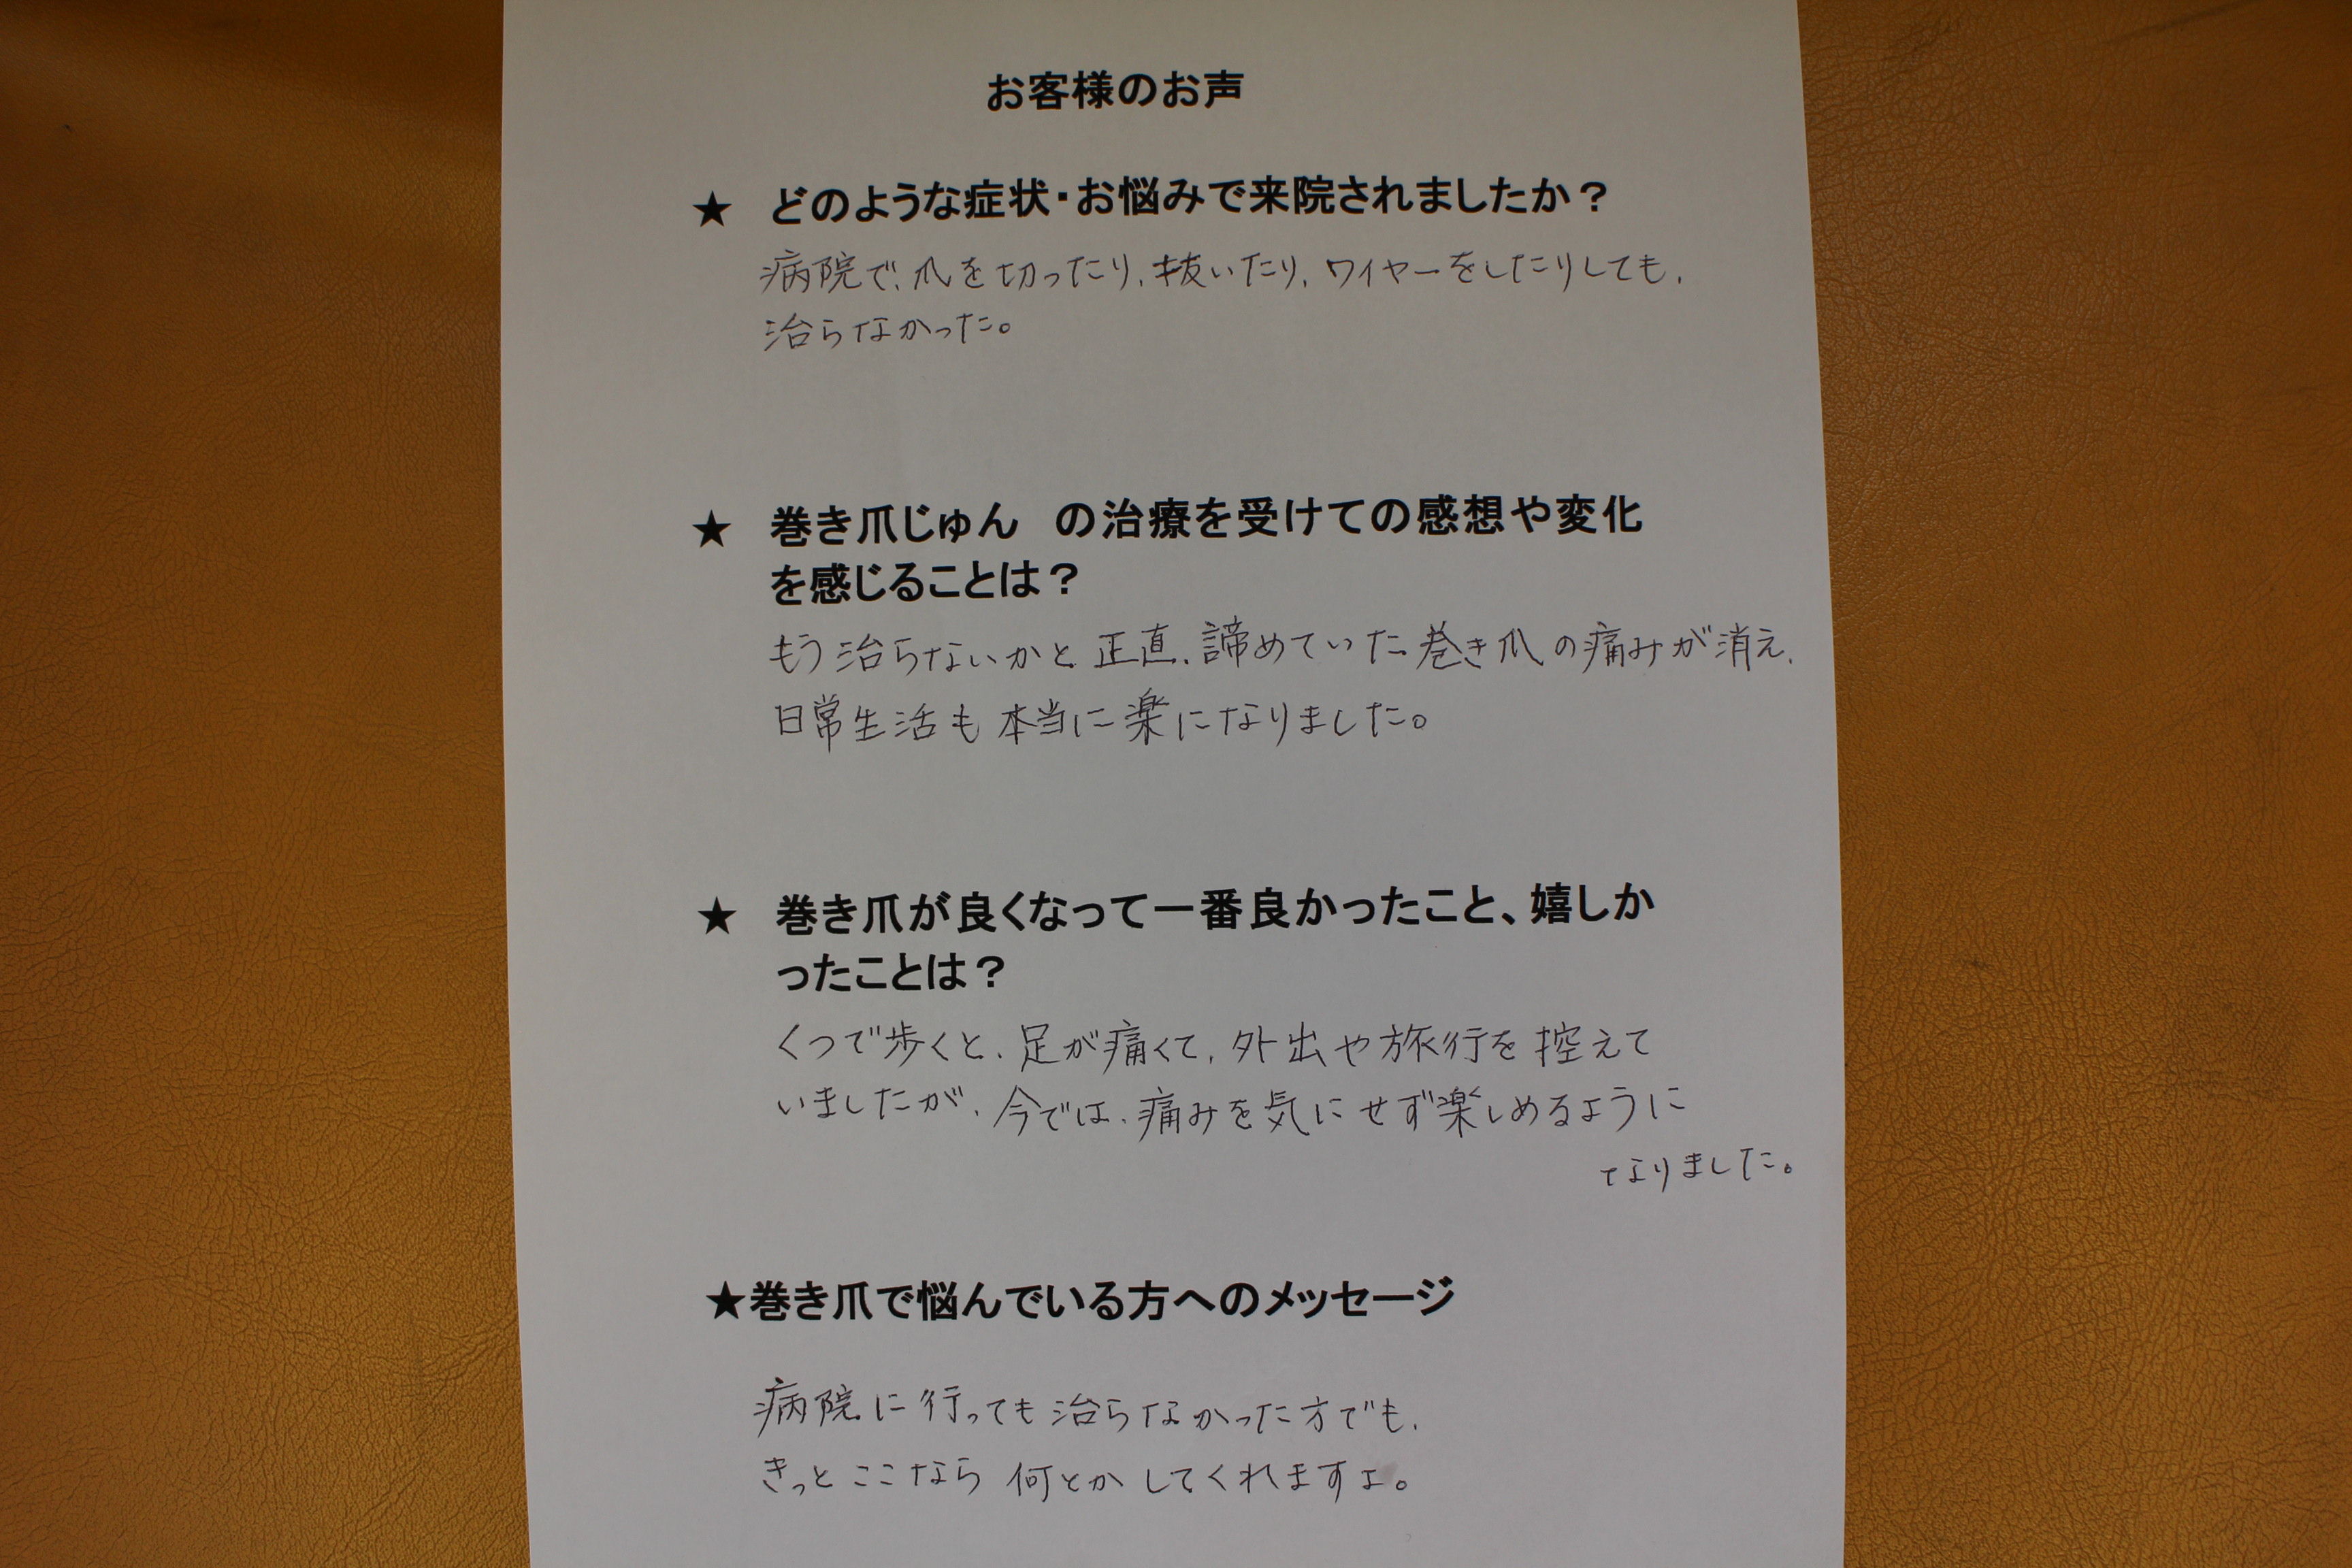 お客様のお声
★ どのような症状・お悩みで来院されましたか？
病院で、爪を切ったり、抜いたり、ワイヤーをしたりしても、
治らなかった。
★ 巻き爪じゅん　の治療を受けての感想や変化
を感じることは？
もう治らないかと正直、諦めていた巻き爪の痛みが消え、
日常生活も本当に楽になりました。
★ 巻き爪が良くなって一番良かったこと、嬉しか
ったことは？
くつで歩くと、足が痛くて、外出や旅行を控えて
いましたが、今では、痛みを気にせず楽しめるように
なりました。
★巻き爪で悩んでいる方へのメッセージ
病院に行っても治らなかった方でも、
きっとここなら何とかしてくれますよ。